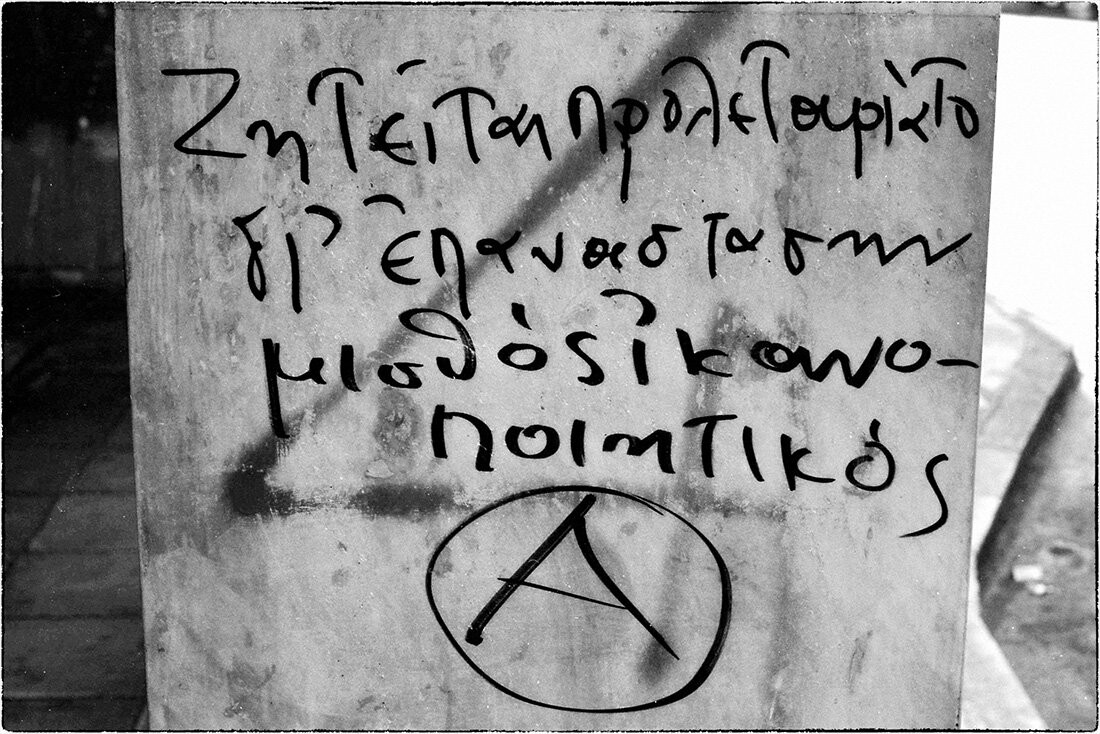 Ζητεῖται προλεταριᾶτο
γι' ἐπανάσταση
μισθὸς ἱκανο-
ποιητικός
Ⓐ